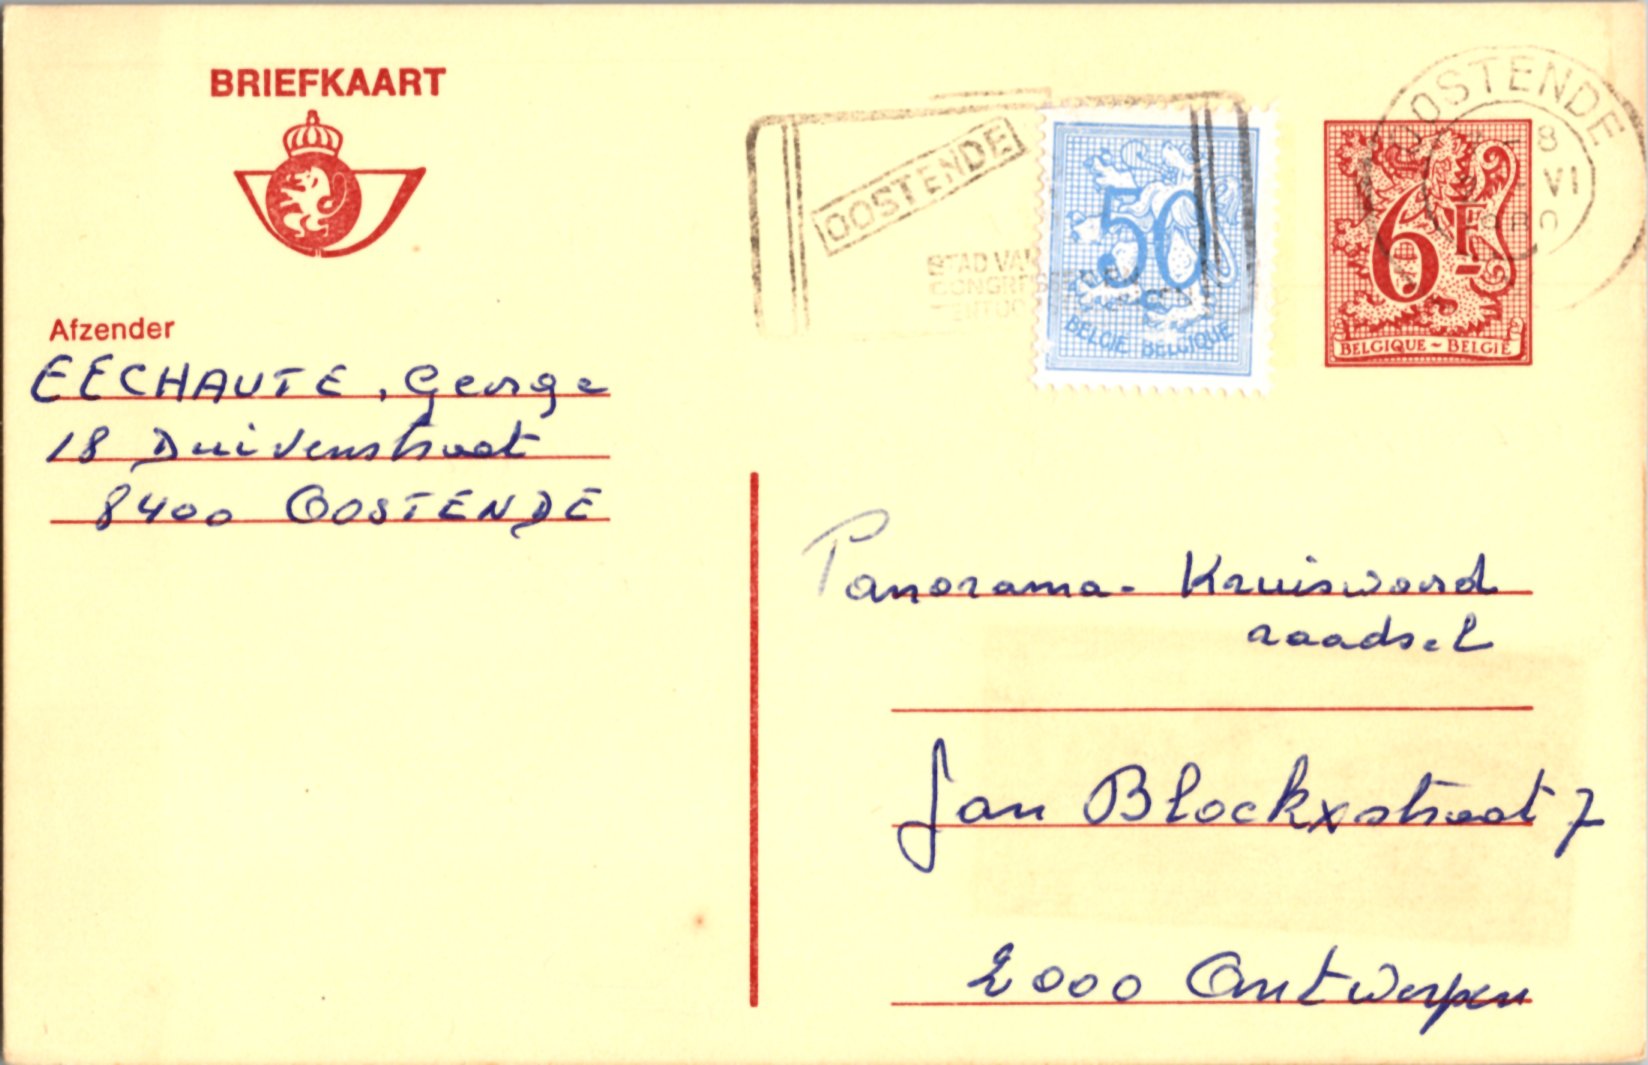 BRIEFKAART
OOSTENDE
8
VI
OOSTENDE
STAD VAN
50
BELGIE BELGIQUE
6F
BELGIQUE - BELGIË
Afzender
EECHAUTE, George
18 Duivenstraat
8400 OOSTENDE
Panorama - Kruiswoord
raadsel
Jan Blockxstraat 7
2000 Antwerpen